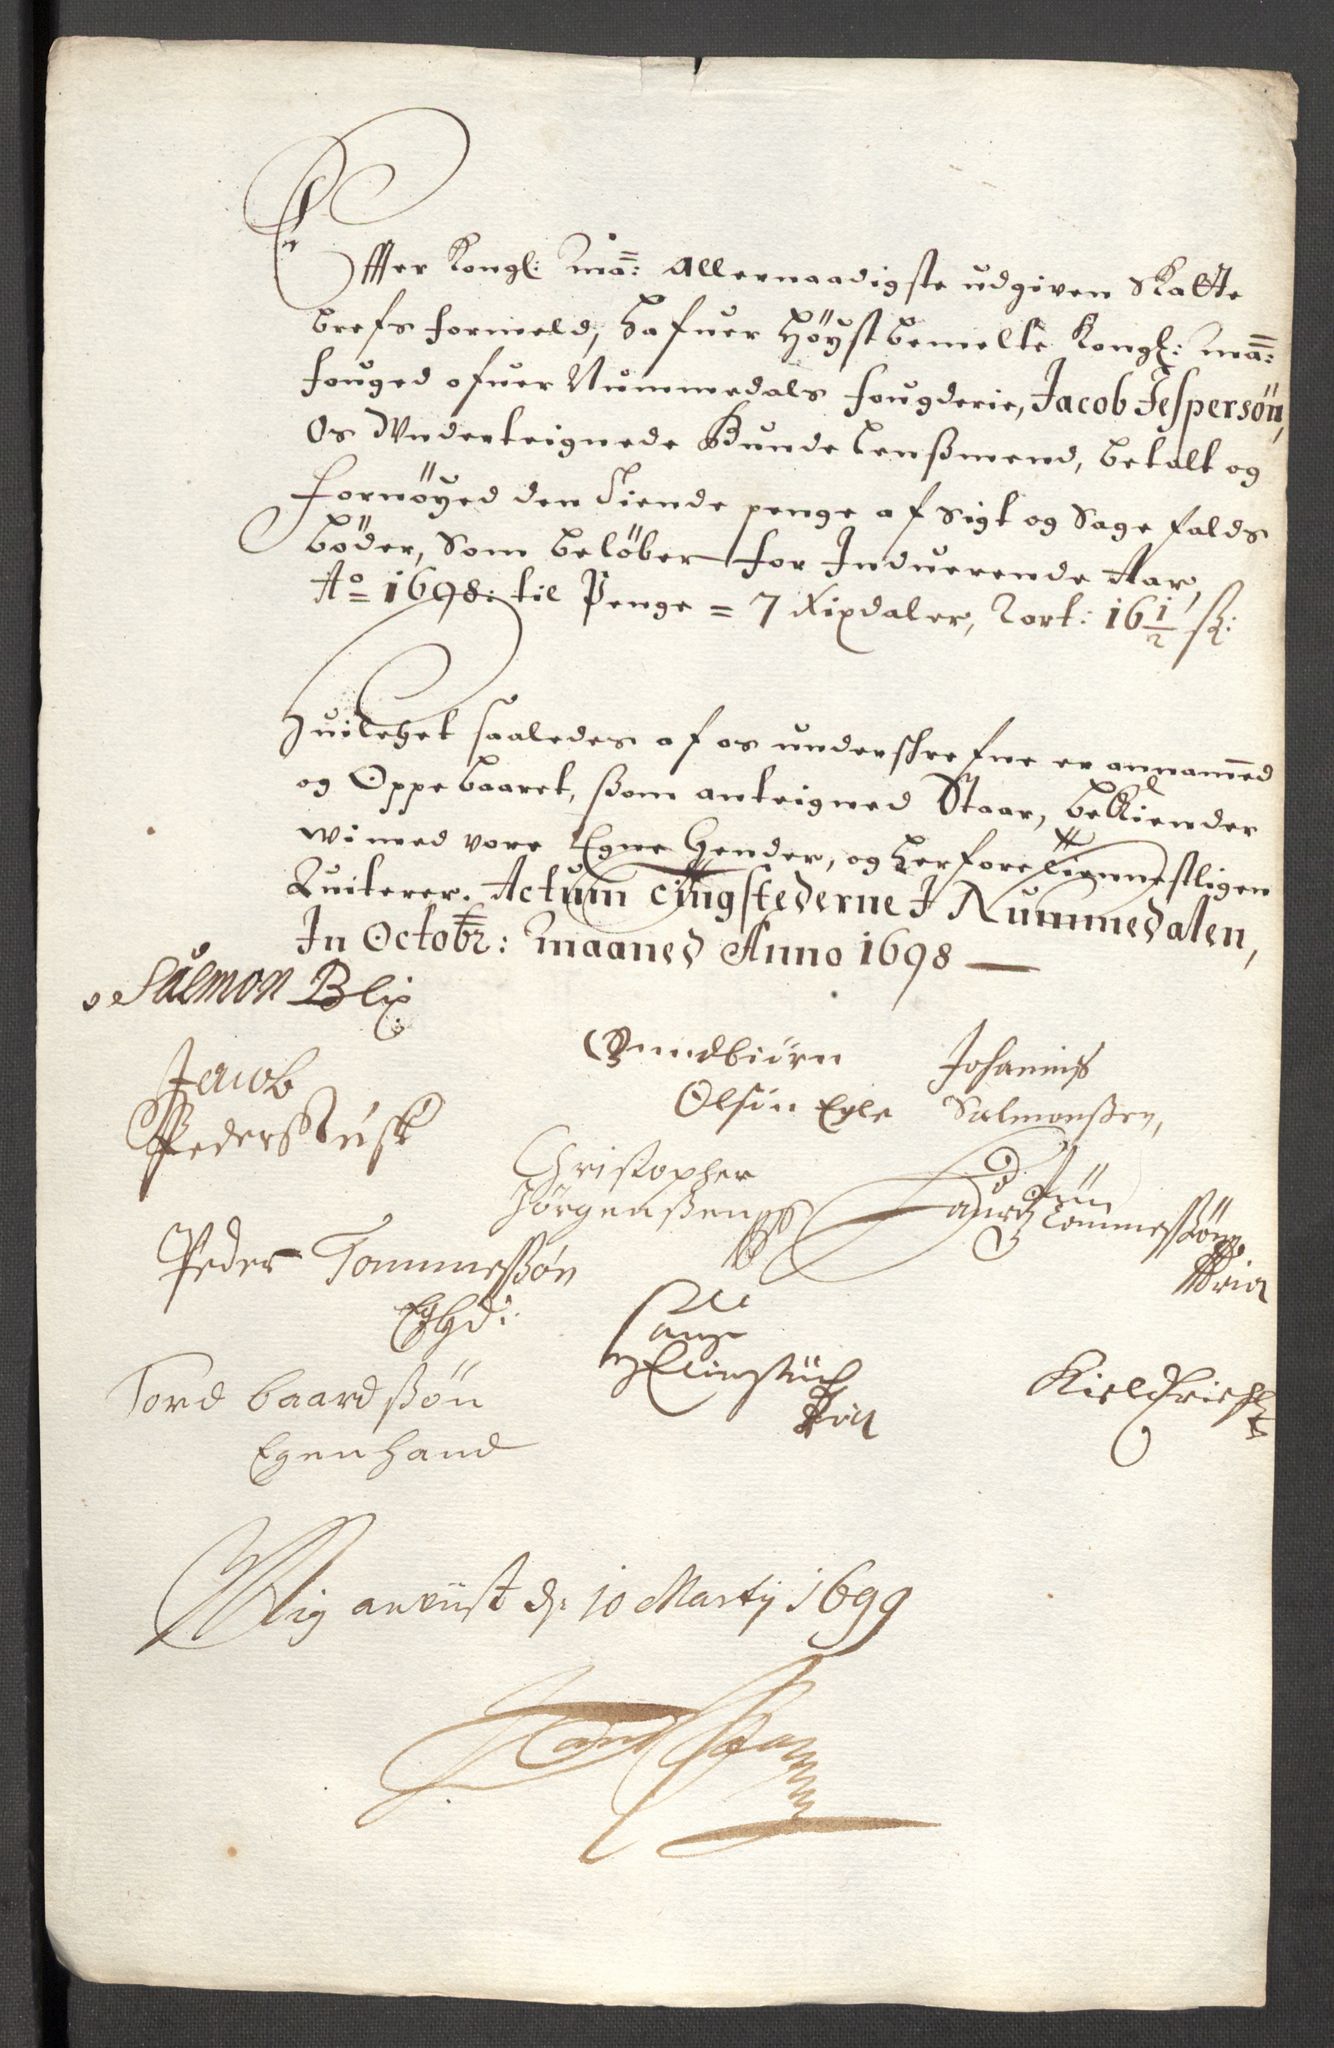 Effter Kongl: Maÿ: Allernaadigste udgiven Skatte
brefs formeld, hafuer Höystbemelte Kongl: Maÿ:
fouged ofuer Nummedals fougderie, Jacob Jespersøn,
Os Underteignede Bunde Lenßmend, betalt og
fornöyed den Tiende penge af Sigt og Sagefalds
böder, Som belöber for Indeuerende Aar,
Ao 1698: til Penge = 7 Rixdaler, Tort: 16 1/2 ſk:
Huilchet saaledes af os underschrefne er annammed
og Oppebaaret, ßom anteigned Staar, bekiender
wi med vore Egne Hender, og herfore tiennestligen
Quiterer. Actum Tingstederne I Nummedalen,
In Octobr: Maaned Anno 1698
Salmon Blix
Gundbiörn Johannis
Jacob
Olsön Egle Salmonßen,
Peders
Christopher
Jörgenßen
Lauritz Tommesßön
Peder Tommesßön
Eghd:
Tord Baardßön
Egenhand
Miig anviist d: 10 Martij 1699